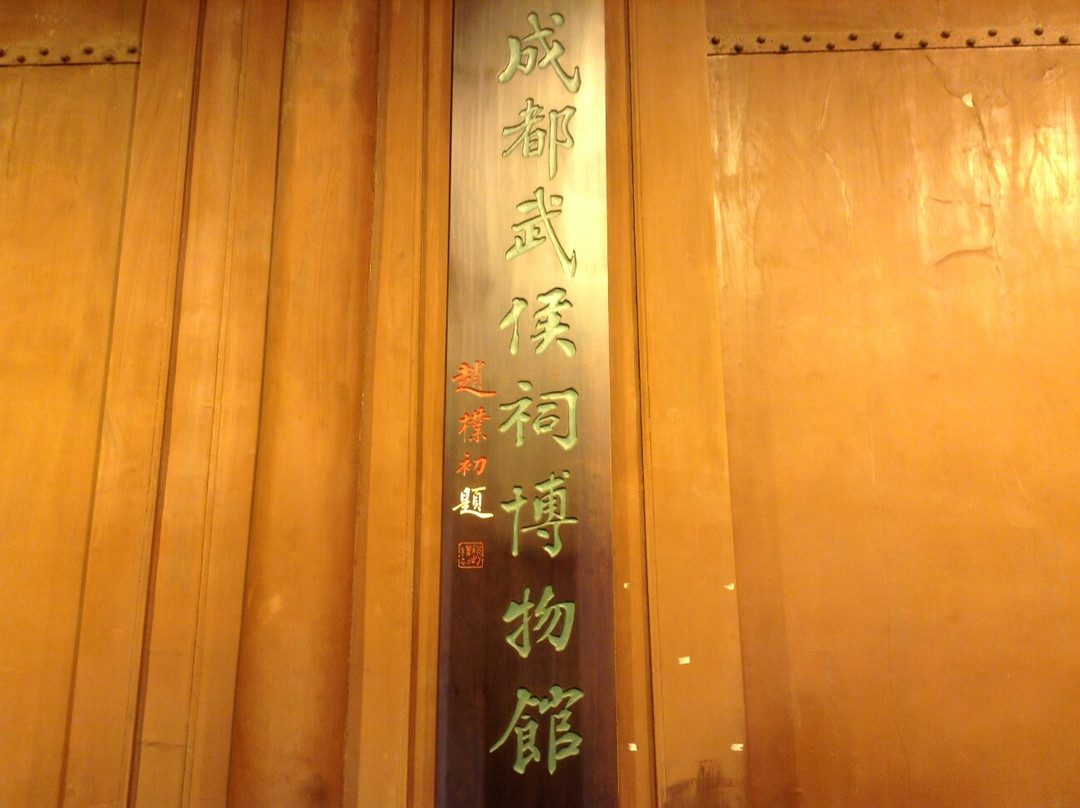 成都武侯祠博物館
趙樸初題